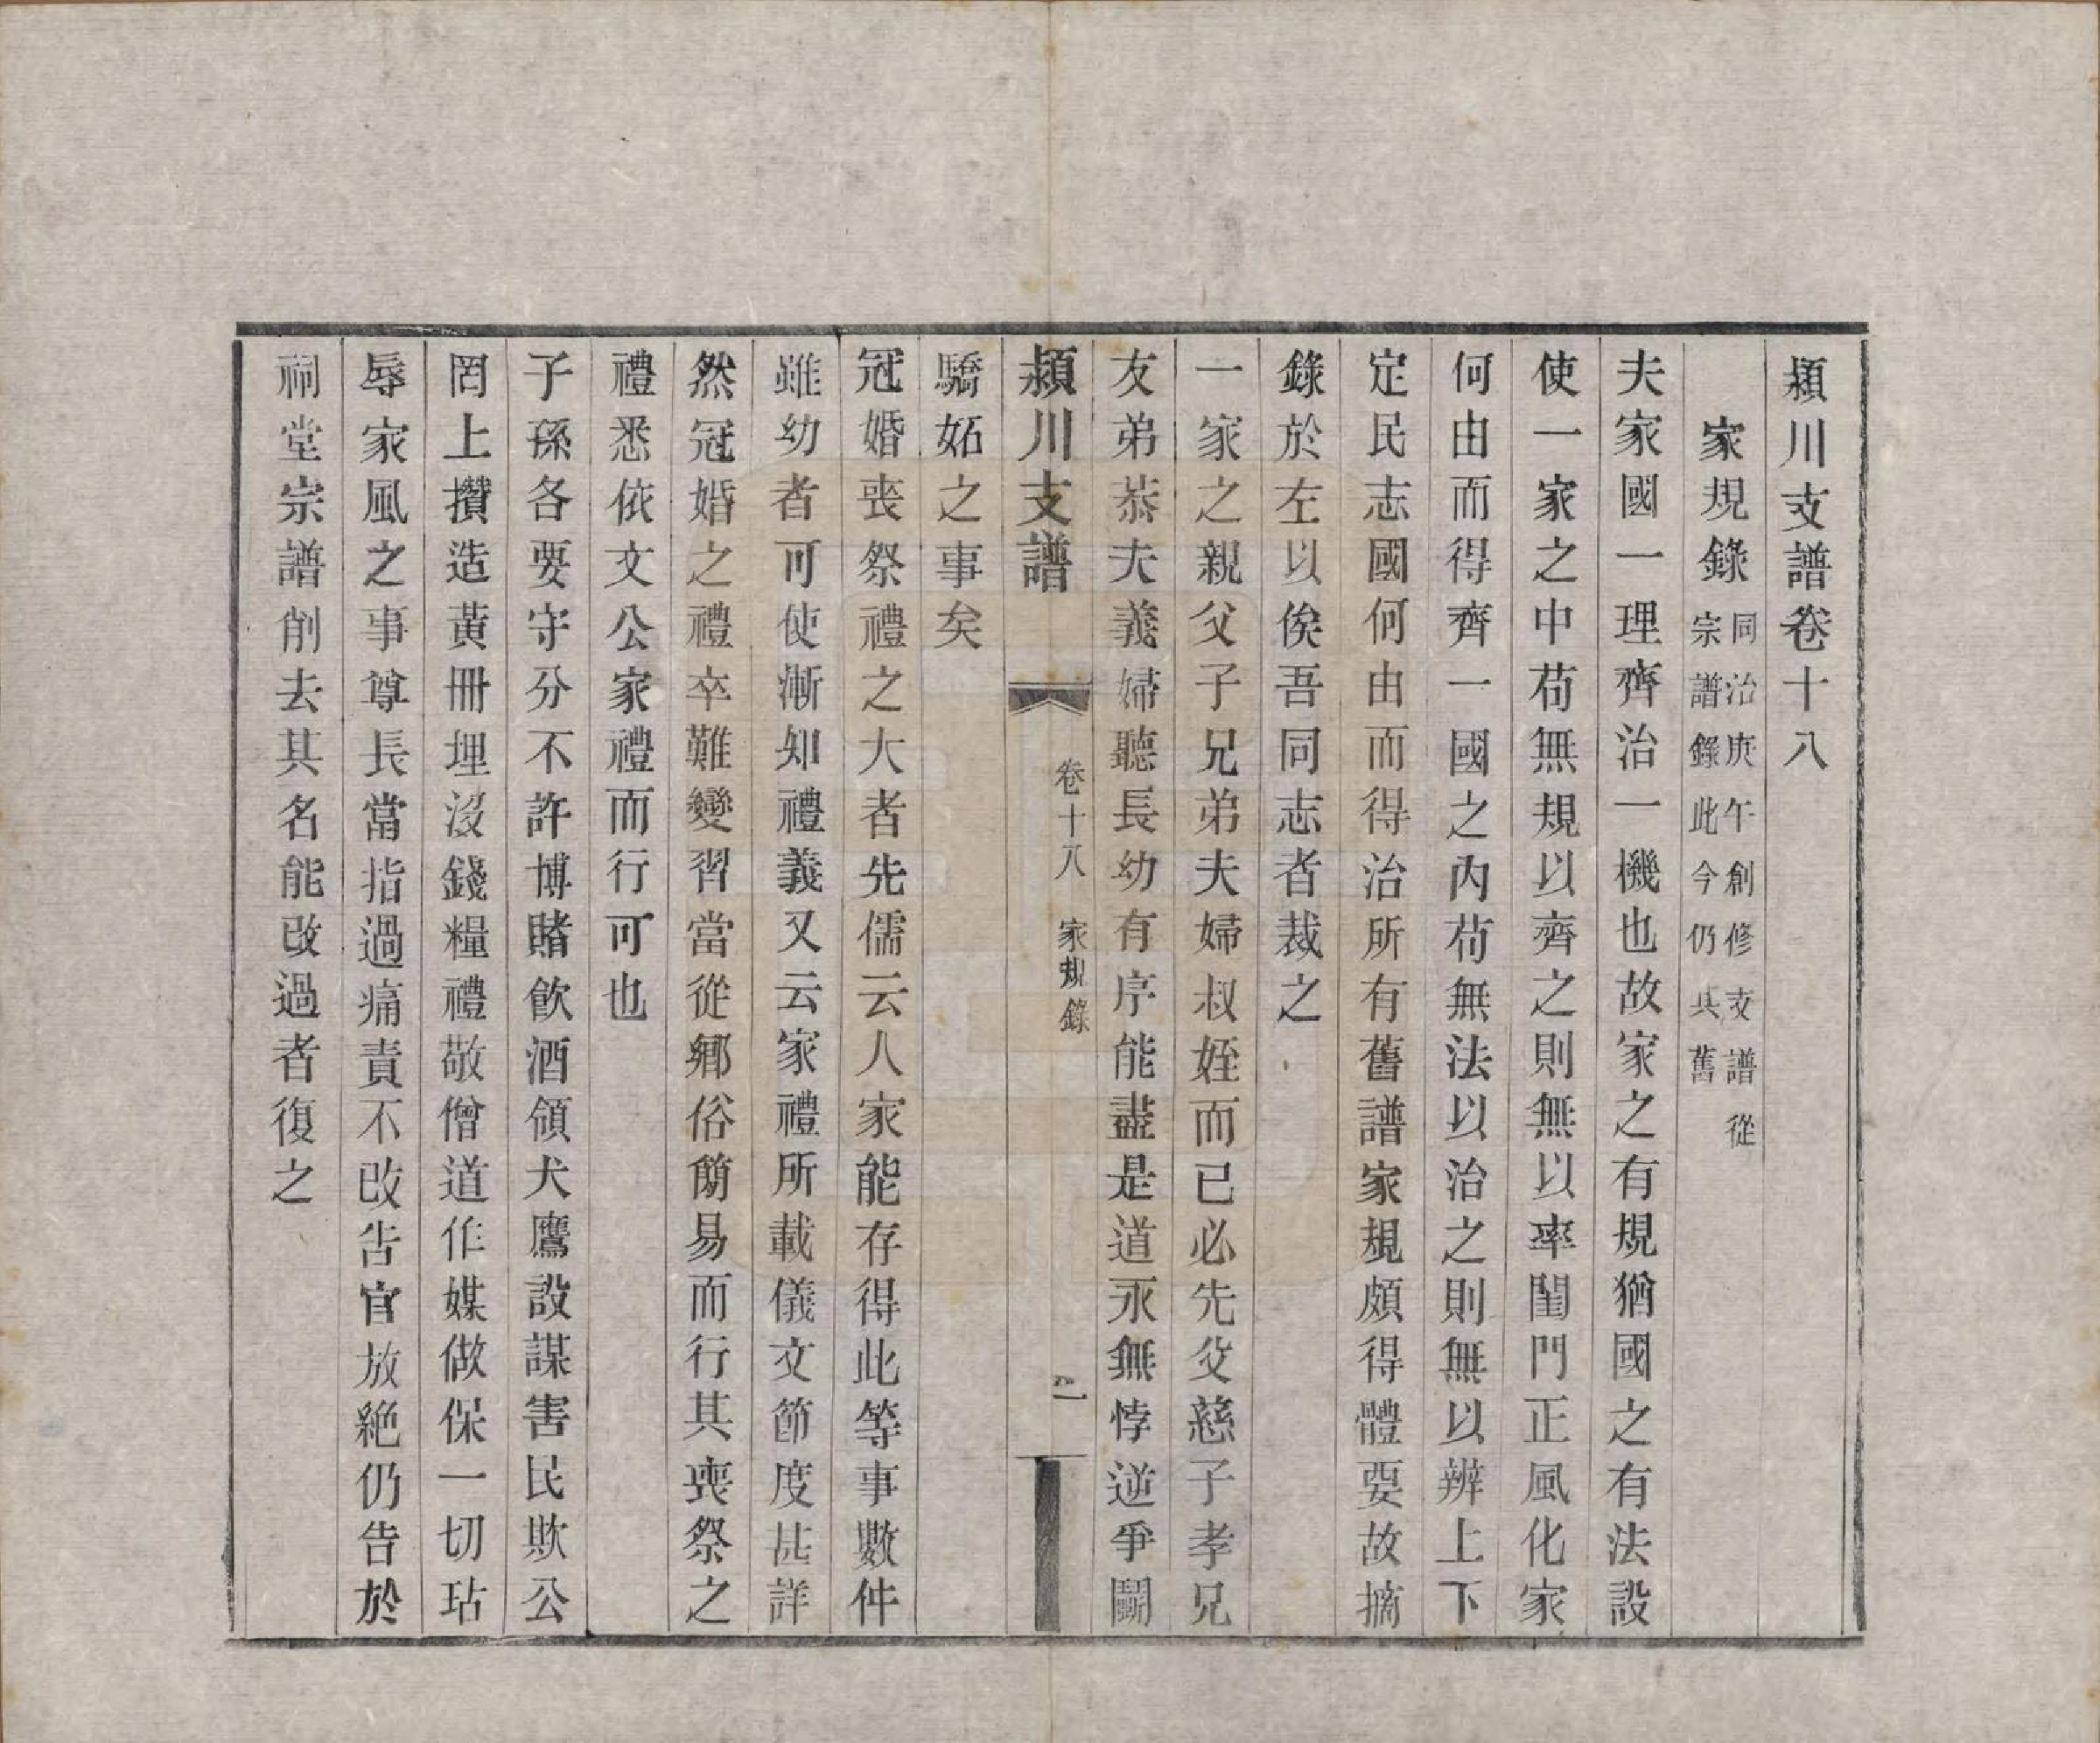 潁川支譜卷十八
家規錄 同治庚午創修支譜從
宗譜錄此今仍其舊
夫家國一理齊治一機也故家之有規猶國之有法設
使一家之中苟無規以齊之則無以率閨門正風化家
何由而得齊一國之內苟無法以治之則無以辨上下
定民志國何由而得治所有舊譜家規頗得體要故摘
錄於左以俟吾同志者裁之
一家之親父子兄弟夫婦叔姪而已必先父慈子孝兄
友弟恭夫義婦聽長幼有序能盡是道永無悖逆爭鬭
潁川支譜 卷十八 家規錄 一
驕妬之事矣
冠婚喪祭禮之大者先儒云人家能存得此等事數件
雖幼者可使漸知禮義又云家禮所載儀文節度甚詳
然冠婚之禮卒難變習當從鄉俗簡易而行其喪祭之
禮悉依文公家禮而行可也
子孫各要守分不許博賭飲酒領犬鷹設謀害民欺公
罔上攢造黃冊埋沒錢糧禮敬僧道作媒做保一切玷
辱家風之事尊長當指過痛責不改告官放絕仍告於
祠堂宗譜削去其名能改過者復之